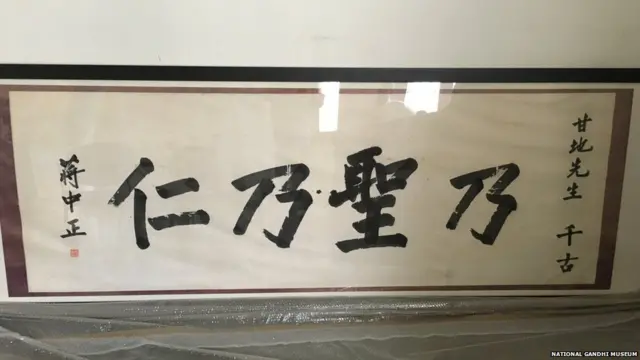 甘地先生 千古
乃聖乃仁
蔣中正
NATIONAL GANDHI MUSEUM